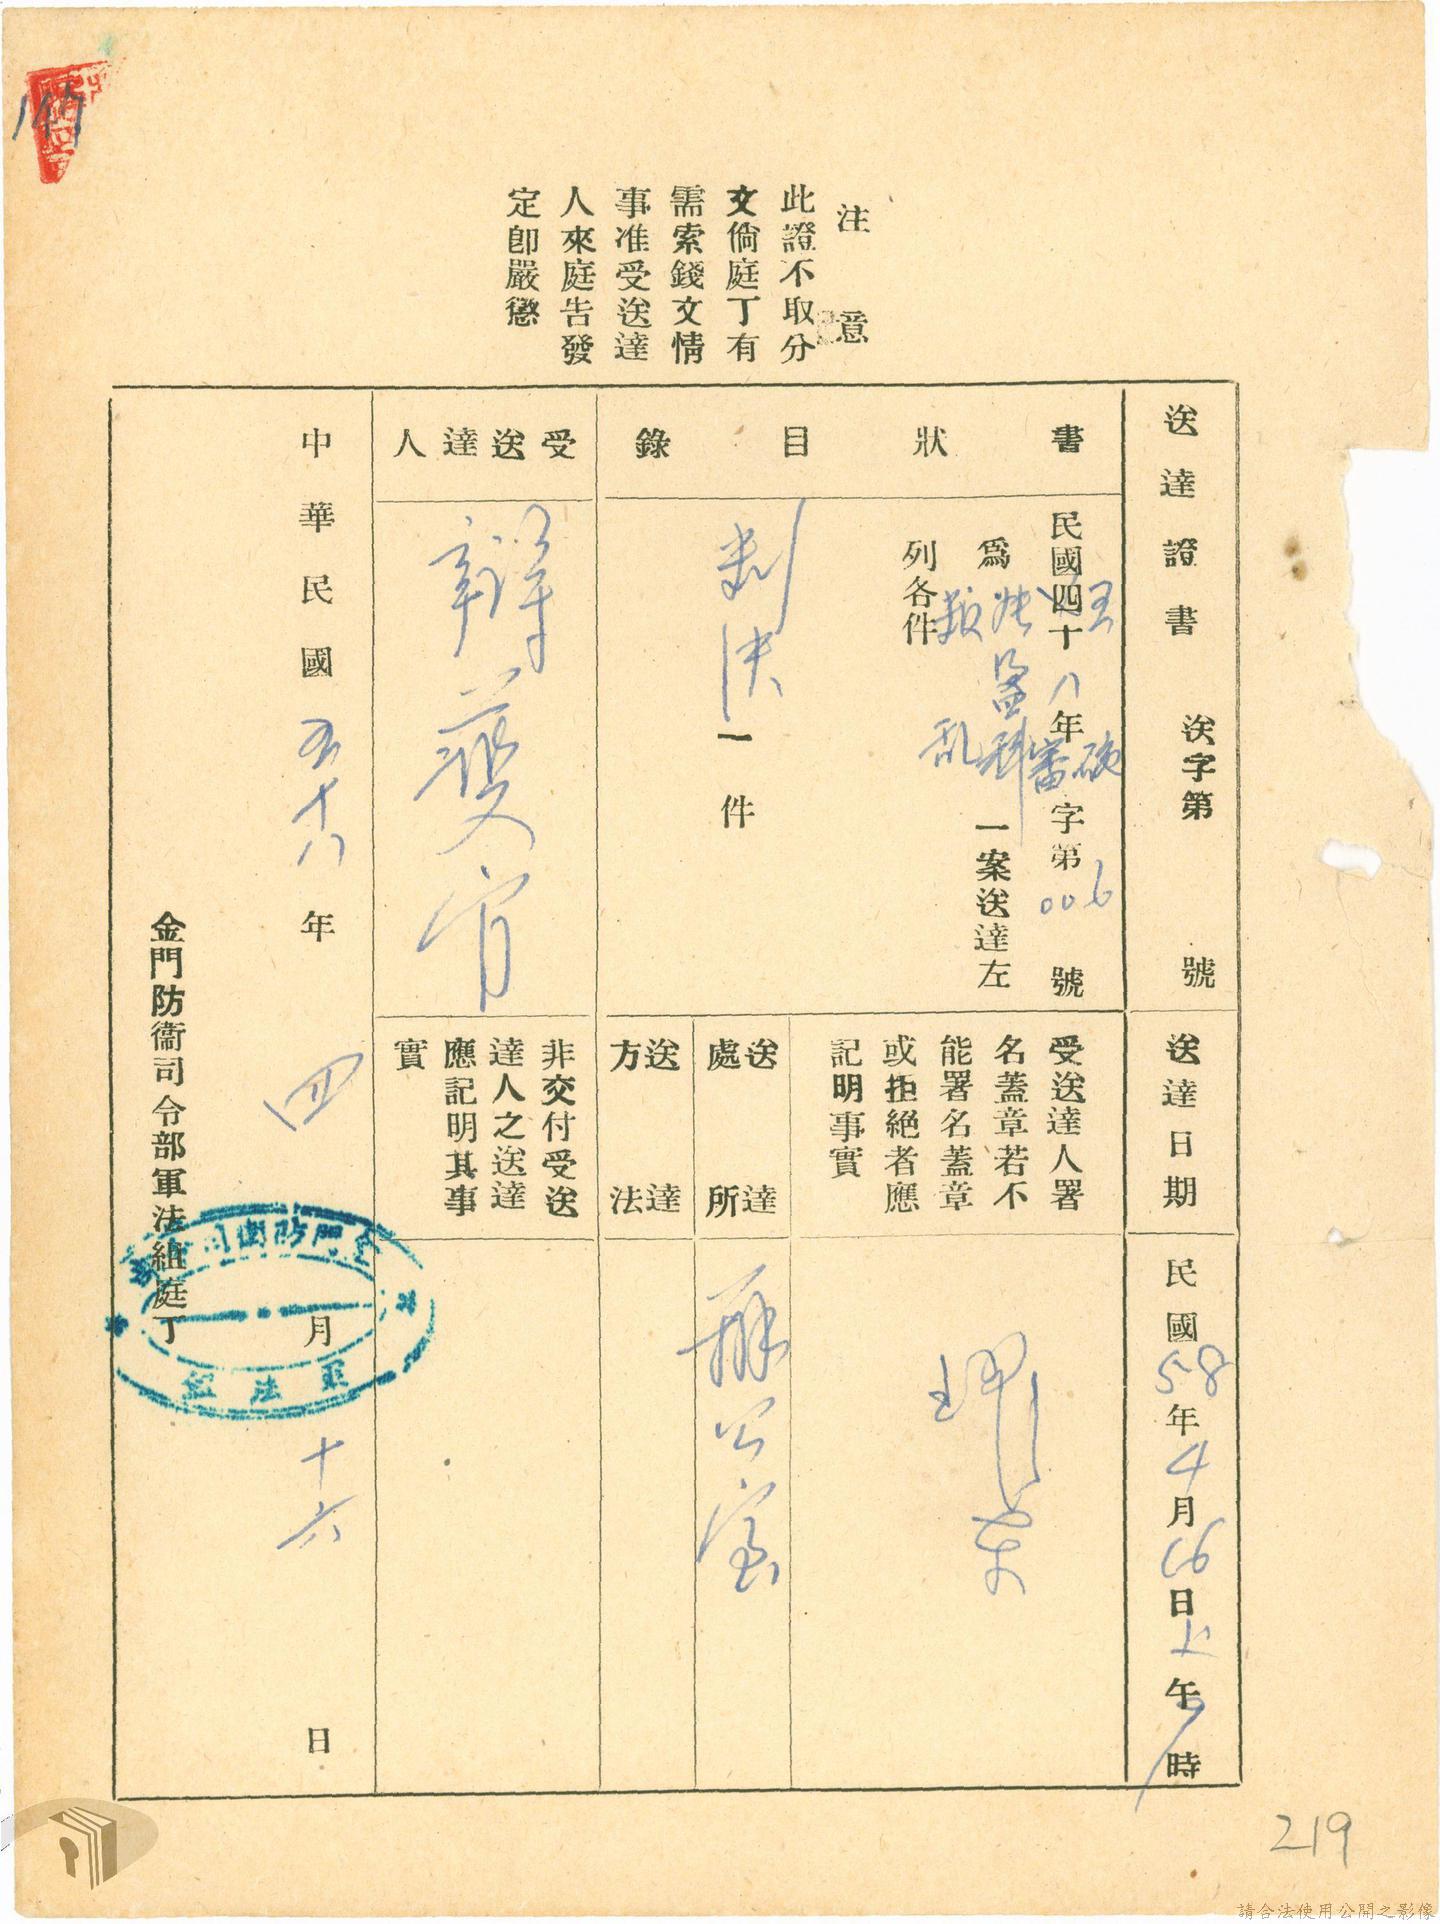 注意
此證不取分
文倘庭丁有
需索錢文情
事准受送達
人來庭告發
定卽嚴懲
送達證書 送字第 號
送達日期
民國58年4月16日下午 時
書狀目錄
民國四十八年 審 字第006號
為叛亂 一案送達左
列各件
判決一件
受送達人署
名蓋章若不
能署名蓋章
或拒絕者應
記明事實
送達處所
辦公室
送達方法
受送達人
辯護官
非交付受送
達人之送達
應記明其事
實
中華民國五十八年四月十六日
金門防衞司令部軍法組庭丁
金門防衛司
軍法組
219
請合法使用公開之影像